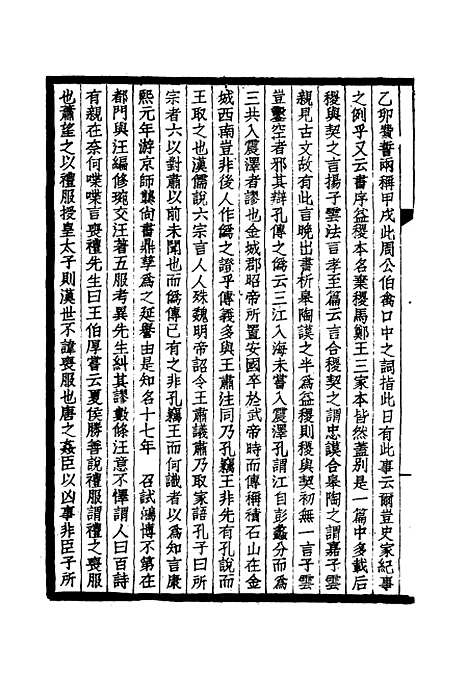 乙卯費誓兩稱甲戌此周公伯禽口中之詞指此日有此事云爾豈史家紀事
之例乎又云書序益稷本名棄稷馬鄭王三家本皆然蓋别是一篇中多載后
稷與契之言揚子雲法言孝至篇云言合稷契之謂忠謨合皋陶之謂嘉子雲
親見古文故有此言晚出書析皋陶謨之半為益稷則稷與契初無一言子雲
豈鑿空者邪其辯孔傳之僞云三江入海未嘗入震澤孔謂江自彭蠡分而為
三共入震澤者謬也金城郡昭帝所置安國卒於武帝時而傳稱積石山在金
城西南豈非後人作僞之證乎傳義多與王肅注同乃孔竊王非先有孔說而
王取之也漢儒說六宗言人人殊魏明帝詔令王肅議肅乃取家語孔子曰所
宗者六以對肅以前未聞也僞傳已有之非孔竊王而何識者以為知言康
熙元年游京師龔尙書鼎孳為之延譽由是知名十七年 召試鴻博不第在
都門與汪編修琬交汪著五服考異先生糾其謬數條汪意不懌謂人曰百詩
有親在奈何喋喋言喪禮先生曰王伯厚嘗云夏侯勝善說禮服謂禮之喪服
也蕭望之以禮服授皇太子則漢世不諱喪服也唐之姦臣以凶事非臣子所